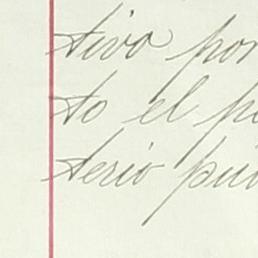 tivo por
to el p
terio pú